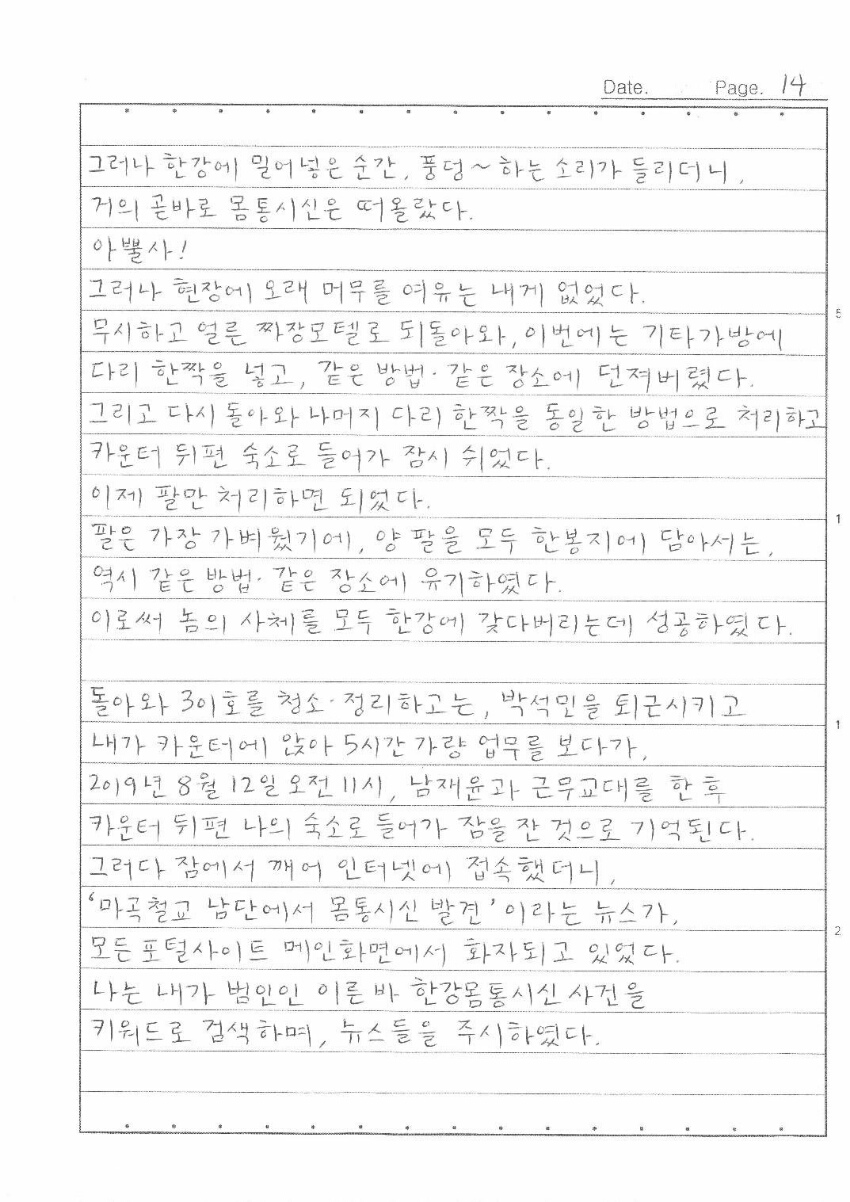 Date. Page. 14
그러나 한강에 밀어넣은 순간, 풍덩~하는 소리가 들리더니,
거의 곧바로 몸통시신은 떠올랐다.
아뿔사!
그러나 현장에 오래 머무를 여유는 내게 없었다.
5
무시하고 얼른 짜장모텔로 되돌아와, 이번에는 기타가방에
다리 한짝을 넣고, 같은 방법·같은 장소에 던져버렸다.
그리고 다시 돌아와 나머지 다리 한짝을 동일한 방법으로 처리하고
카운터 뒤편 숙소로 들어가 잠시 쉬었다.
이제 팔만 처리하면 되었다.
1
팔은 가장 가벼웠기에, 양 팔을 모두 한봉지에 담아서는,
역시 같은 방법·같은 장소에 유기하였다.
이로써 놈의 사체를 모두 한강에 갖다버리는데 성공하였다.
돌아와 301호를 청소·정리하고는, 박석민을 퇴근시키고
1
내가 카운터에 앉아 5시간 가량 업무를 보다가,
2019년 8월 12일 오전 11시, 남재윤과 근무교대를 한 후
카운터 뒤편 나의 숙소로 들어가 잠을 잔 것으로 기억된다.
그러다 잠에서 깨어 인터넷에 접속했더니,
‘마곡철교 남단에서 몸통시신 발견’이라는 뉴스가,
2
모든 포털사이트 메인화면에서 화자되고 있었다.
나는 내가 범인인 이른 바 한강몸통시신 사건을
키워드로 검색하며, 뉴스들을 주시하였다.